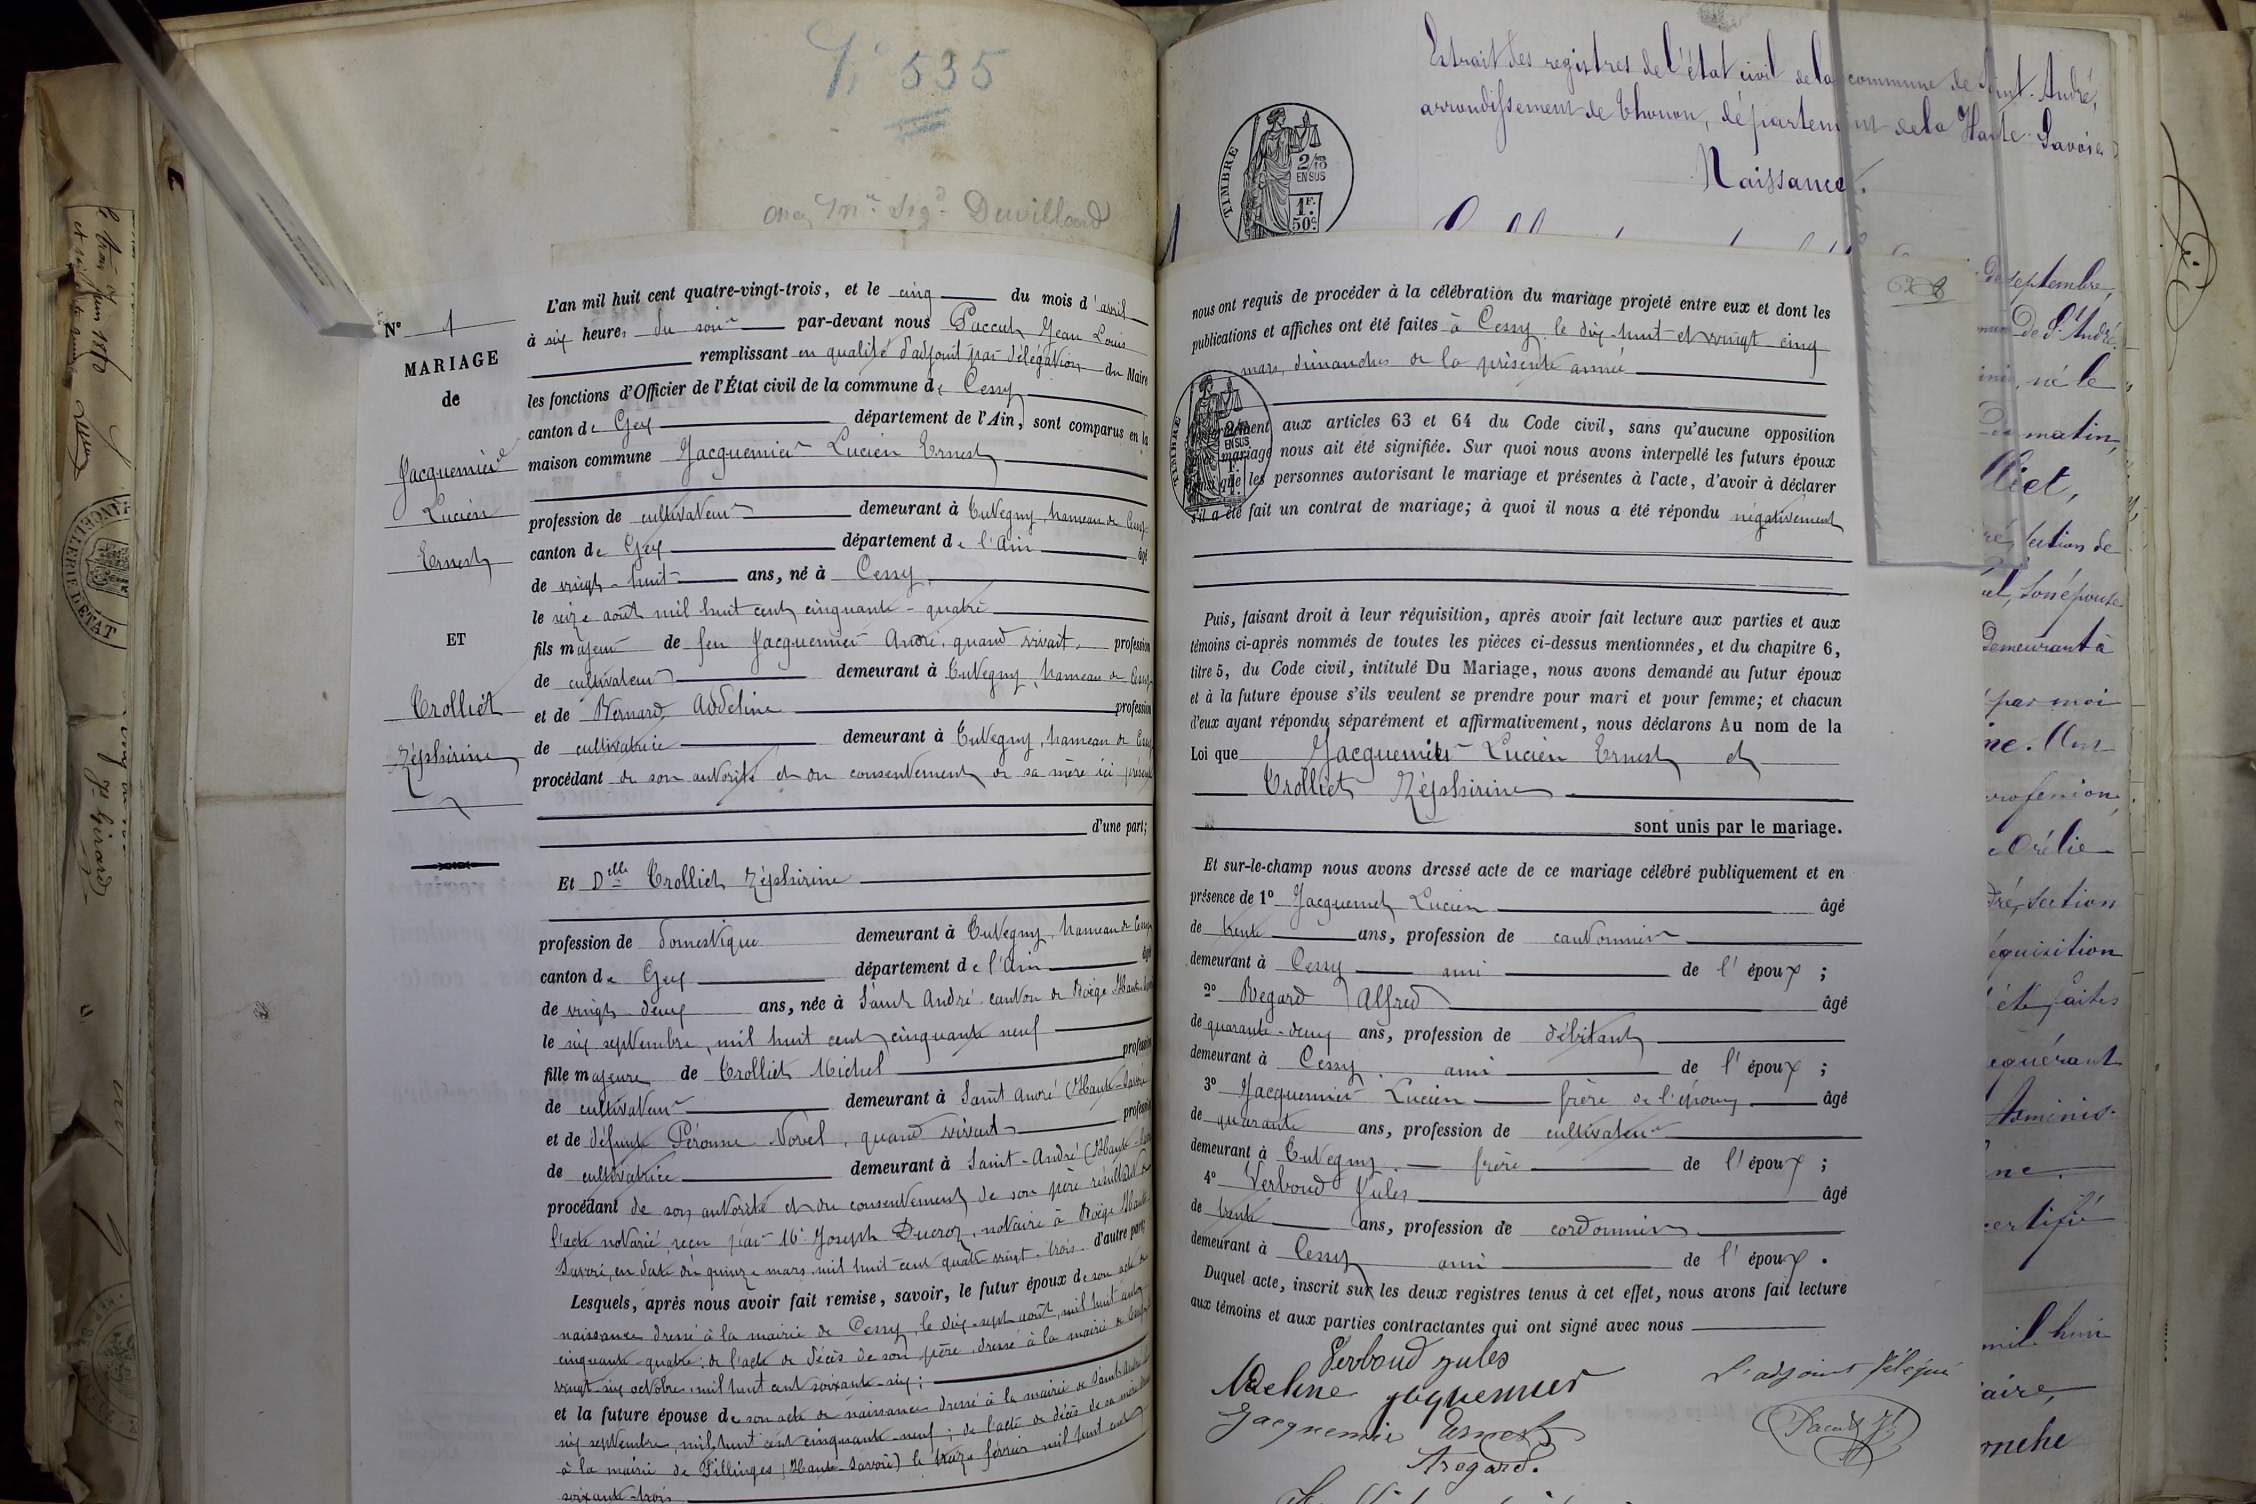 535
chez Duvilland
N° 1
MARIAGE
de
Jacquemier
Lucien
Ernest
ET
Trolliet
Zéphirine
L'an mil huit cent quatre-vingt-trois, et le cinq du mois d'avril
à six heures du soir par-devant nous Paccut Jean Louis
remplissant en qualité d'adjoint par délégation du Maire
les fonctions d'Officier de l'État civil de la commune de Cessy
canton de Gex département de l'Ain, sont comparus en la
maison commune Jacquemier Lucien Ernest
profession de cultivateur demeurant à Tutegny, hameau de Cessy
canton de Gex département de l'Ain âgé
de vingt-huit ans, né à Cessy,
le seize août mil huit cent cinquante-quatre
fils majeur de feu Jacquemier André, quand vivait, profession
de cultivateur demeurant à Tutegny, hameau de Cessy
et de Bernard Addeline profession
de cultivatrice demeurant à Tutegny, hameau de Cessy
procédant de son autorité et du consentement de sa mère ici présente
d'une part;
Et Delle Trolliet Zéphirine
profession de domestique demeurant à Tutegny, hameau de Cessy
canton de Gex département de l'Ain âgé
de vingt deux ans, née à Saint André canton de Boëge Haute
le six septembre, mil huit cent cinquante neuf
fille majeure de Trolliet Michel profession
de cultivateur demeurant à Saint André (Haute-Savoie
et de défunte Péronne Novel, quand vivait profession
de cultivatrice demeurant à Saint-André (Haute
procédant de son autorité et du consentement de son père résultant de
l'acte notarié reçu par Me Joseph Ducroz, notaire à Boëge Haute
Savoie, en date du quinze mars mil huit cent quatre vingt-trois. d'autre part;
Lesquels, après nous avoir fait remise, savoir, le futur époux de son acte de
naissance dressé à la mairie de Cessy, le dix-sept août, mil huit cent
cinquante-quatre; de l'acte de décès de son père, dressé à la mairie de Cessy
vingt-six octobre, mil huit cent soixante-six;
et la future épouse de son acte de naissance dressé à la mairie de Saint André
six septembre, mil huit cent cinquante-neuf; de l'acte de décès de sa mère
à la mairie de Fillinges (Haute-Savoie) le treize février mil huit cent
soixante-trois
Extrait des registres de l'état civil de la commune de Saint-André,
arrondissement de Thonon, département de la Haute-Savoie
Naissance.
TIMBRE
2/10
EN SUS
1F.
50c.
nous ont requis de procéder à la célébration du mariage projeté entre eux et dont les
publications et affiches ont été faites à Cessy le dix-huit et vingt-cinq
mars, dimanches de la présente année
aux articles 63 et 64 du Code civil, sans qu'aucune opposition
mariage nous ait été signifiée. Sur quoi nous avons interpellé les futurs époux
que les personnes autorisant le mariage et présentes à l'acte, d'avoir à déclarer
s'il a été fait un contrat de mariage; à quoi il nous a été répondu négativement
TIMBRE
EN SUS
Puis, faisant droit à leur réquisition, après avoir fait lecture aux parties et aux
témoins ci-après nommés de toutes les pièces ci-dessus mentionnées, et du chapitre 6,
titre 5, du Code civil, intitulé Du Mariage, nous avons demandé au futur époux
et à la future épouse s'ils veulent se prendre pour mari et pour femme; et chacun
d'eux ayant répondu séparément et affirmativement, nous déclarons Au nom de la
Loi que Jacquemier Lucien Ernest et
Trolliet Zéphirine
sont unis par le mariage.
Et sur-le-champ nous avons dressé acte de ce mariage célébré publiquement et en
présence de 1° Jacquemet Lucien âgé
de trente ans, profession de cantonnier
demeurant à Cessy ami de l'époux;
2° Regard Alfred âgé
de quarante-deux ans, profession de débitant
demeurant à Cessy, ami de l'époux;
3° Jacquemier Lucien frère de l'époux âgé
de quarante ans, profession de cultivateur
demeurant à Tutegny, frère de l'époux;
4° Verboud Jules âgé
de trente ans, profession de cordonnier
demeurant à Cessy ami de l'époux.
Duquel acte, inscrit sur les deux registres tenus à cet effet, nous avons fait lecture
aux témoins et aux parties contractantes qui ont signé avec nous
Verboud jules
Adeline jaquemier
L'adjoint délégué
Jacquemier Ernest
Paccut
Aregard.
septembre,
De St André.
né le
matin,
lliet,
section de
son épouse
demeurant à
par moi
profession
section
réquisition
été faites
requérant
certifié
mil hui
CHANCELLERIE D'ETAT
Jn Girard